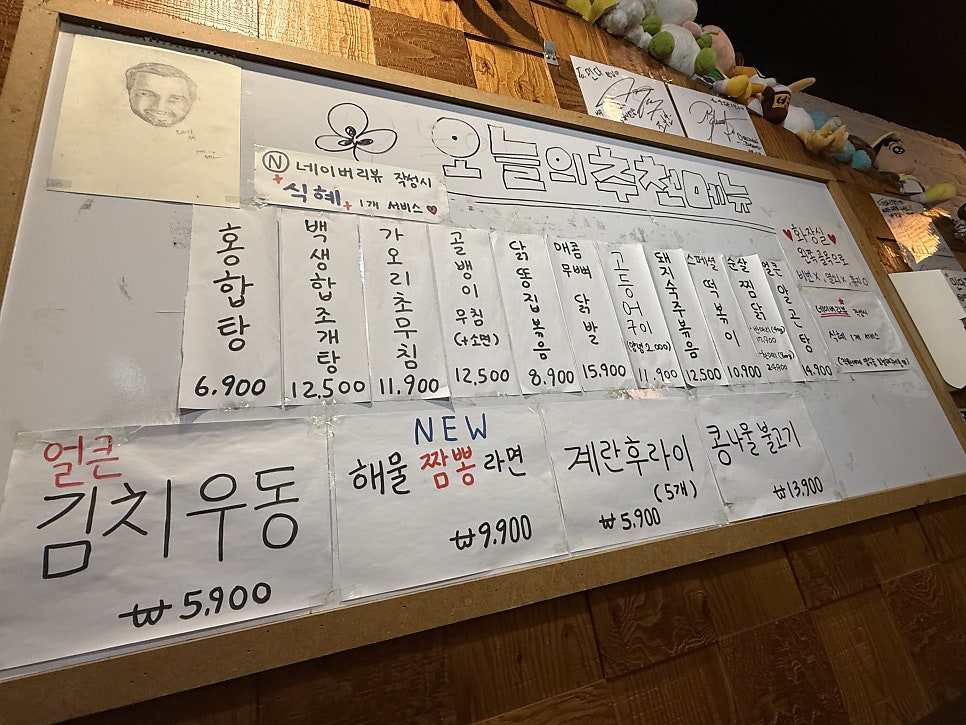 오늘의 추천메뉴
N 네이버리뷰 작성시
식혜 1개 서비스
홍합탕
6.900
백생합조개탕
12.500
가오리초무침
11.900
골뱅이무침
(+소면)
12.500
닭똥집볶음
8.900
매콤
무뼈
닭발
15.900
고등어구이
(양념 2.000)
11.900
돼지숙주볶음
12.500
스페셜
떡볶이
10.900
순살
찜닭
얼큰
알곤탕
14.900
화장실
왼쪽
네이버리뷰 작성시
식혜 1개 서비스
얼큰
김치우동
₩5,900
NEW
해물 짬뽕 라면
₩9.900
계란후라이
(5개)
₩5.900
콩나물 불고기
₩13,900